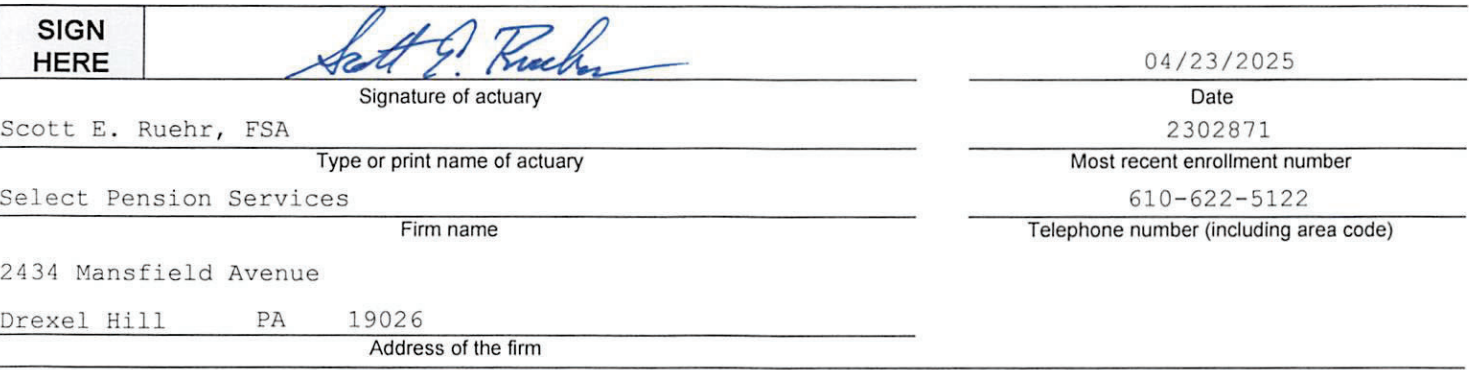 SIGN
HERE
Scott E. Ruehr
04/23/2025
Signature of actuary
Date
Scott E. Ruehr, FSA
2302871
Type or print name of actuary
Most recent enrollment number
Select Pension Services
610-622-5122
Firm name
Telephone number (including area code)
2434 Mansfield Avenue
Drexel Hill PA 19026
Address of the firm